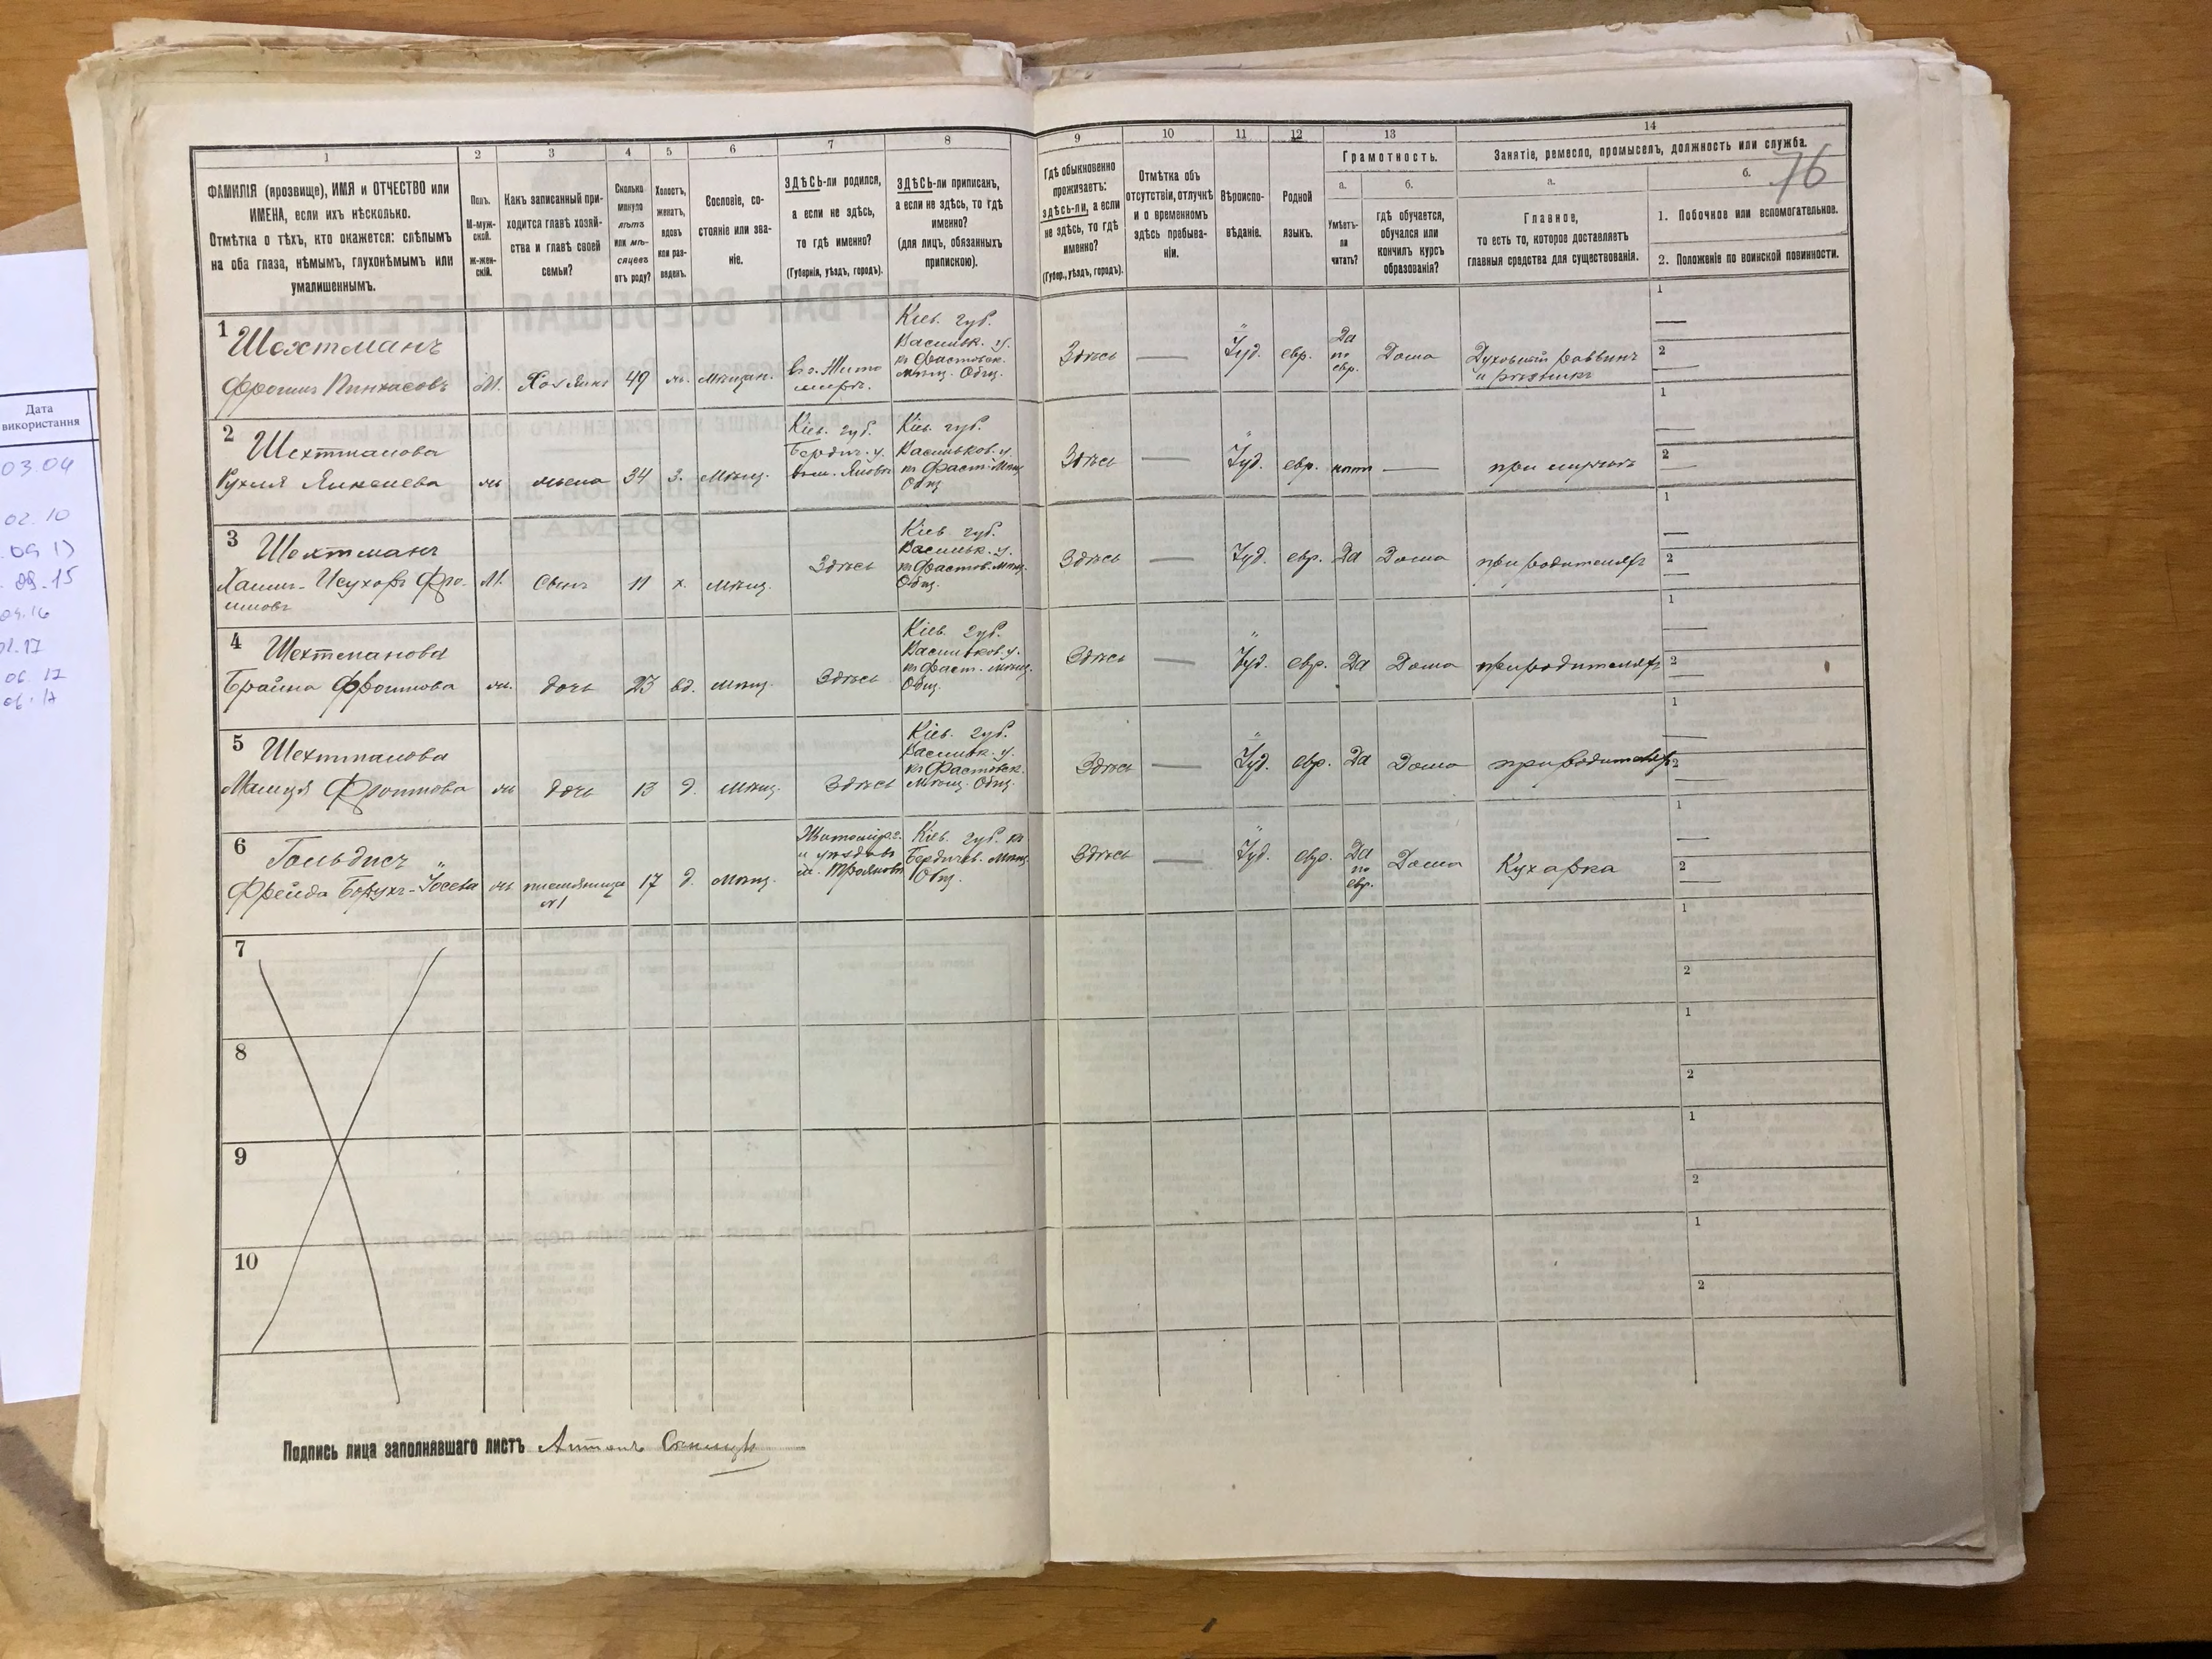 Дата
використання
03.04
02.10
09.16
06.17
76
1
2
3
4
5
6
7
8
9
10
11
12
13
14
ФАМИЛІЯ (прозвище), ИМЯ и ОТЧЕСТВО или
ИМЕНА, если ихъ нѣсколько.
Отмѣтка о тѣхъ, кто окажется: слѣпымъ
на оба глаза, нѣмымъ, глухонѣмымъ или
умалишеннымъ.
Полъ.
М-муж-
ской.
Ж-жен-
скій.
Какъ записанный при-
ходится главѣ хозяй-
ства и главѣ своей
семьи?
Сколько
минуло
лѣтъ
или мѣ-
сяцевъ
отъ роду?
Холостъ,
женатъ,
вдовъ
или раз-
веденъ.
Сословіе, со-
стояніе или зва-
ніе.
ЗДѢСЬ-ли родился,
а если не здѣсь,
то гдѣ именно?
(Губернія, уѣздъ, городъ).
ЗДѢСЬ-ли приписанъ,
а если не здѣсь, то гдѣ
именно?
(для лицъ, обязанныхъ
припискою).
Гдѣ обыкновенно
проживаетъ:
здѣсь-ли, а если
не здѣсь, то гдѣ
именно?
(Губер., уѣздъ, городъ).
Отмѣтка объ
отсутствіи, отлучкѣ
и о временномъ
здѣсь пребыва-
ніи.
Вѣроиспо-
вѣданіе.
Родной
языкъ.
Грамотность.
а.
Умѣетъ-
ли
читать?
б.
гдѣ обучается,
обучался или
кончилъ курсъ
образованія?
Занятіе, ремесло, промыселъ, должность или служба.
а.
Главное,
то есть то, которое доставляетъ
главныя средства для существованія.
б.
1. Побочное или вспомогательное.
2. Положеніе по воинской повинности.
1 Шехтманъ
Фроимъ Пинхасовъ
М.
Хозяинъ
49
ж.
Мѣщан.
въ г. Жито
мирѣ.
Кіев. губ.
Васильк. у.
къ Фастовск.
мѣщ. Общ.
Здѣсь
—
Іуд.
евр.
Да
по
евр.
Дома
Духовный раввинъ
и рѣзникъ
1
—
2
—
2 Шехтманова
Рухля Янкелева
ж
жена
34
з.
Мѣщ.
Кіев. губ.
Бердич. у.
Кіев. губ.
Васильков. у.
къ Фаст. Мѣщ
Общ
Здѣсь
—
Іуд.
евр.
нѣтъ
—
при мужѣ
1
—
2
—
3 Шехтманъ
Хаимъ-Исухоръ Фро-
имовъ
М.
Сынъ
11
х.
мѣщ.
Здѣсь
Кіев губ.
Васильк. у.
къ Фастов. мѣщ.
Общ.
Здѣсь
—
Іуд.
евр.
Да
Дома
при родителяхъ
1
—
2
—
4 Шехтманова
Брайна Фроимова
ж.
дочь
23
вд.
мѣщ.
Здѣсь
Кіев. губ.
Васильков. у.
къ Фаст. мѣщ.
Общ.
Здѣсь
—
Іуд.
евр.
Да
Дома
при родителяхъ
1
—
2
—
5 Шехтманова
Фроимова
ж
дочь
13
д.
мѣщ.
Здѣсь
Кіев. губ.
Васильк. у.
къ Фастовск.
Мѣщ. Общ.
Здѣсь
—
Іуд.
евр.
Да
Дома
при родителяхъ
1
—
2
—
6 Гольдисъ
Фрейда Борухъ-Іосева
ж
№1
17
д.
мѣщ.
м. Трояновъ
Кіев. губ. къ
Бердичев. Мѣщ.
Общ.
Здѣсь
—
Іуд.
евр.
Да
по
евр.
Дома
Кухарка
1
—
2
—
7
1
2
8
1
2
9
1
2
10
1
2
Подпись лица заполнявшаго листъ Антонъ